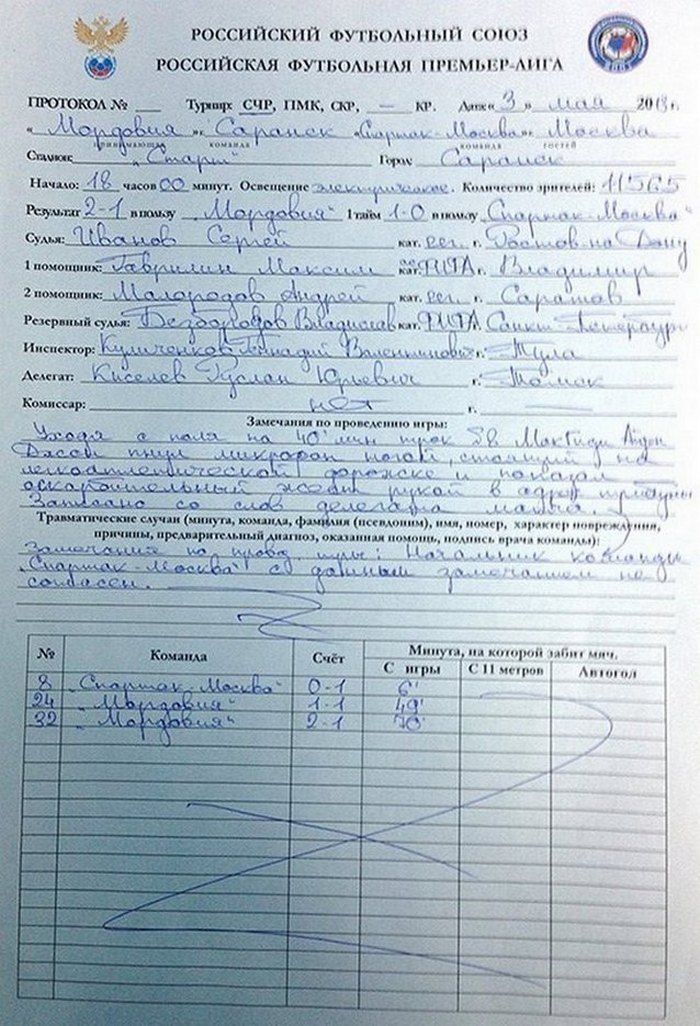 РОССИЙСКИЙ ФУТБОЛЬНЫЙ СОЮЗ
РОССИЙСКАЯ ФУТБОЛЬНАЯ ПРЕМЬЕР-ЛИГА
ПРОТОКОЛ № ___ Турнир: СЧР, ПМК, СКР, — КР. Дата « 3 » май 2013 г.
« Мордовия » г. Саранск «Спартак-Москва» г. Москва
принимающая команда команда гостей
Стадион: „Старт“ Город Саранск
Начало: 18 часов 00 минут. Освещение электрическое. Количество зрителей: 11565
Результат 2-1 в пользу „Мордовия“ 1 тайм 1-0 в пользу „Спартак-Москва“
Судья: Иванов Сергей кат. рег. г. Ростов-на-Дону
1 помощник: Гаврилин Максим кат. ФИФА г. Владимир
2 помощник: Малородов Андрей кат. рег. г. Саратов
Резервный судья: Безбородов Владислав кат. ФИФА г. Санкт-Петербург
Инспектор: Куличенков Геннадий Валентинович г. Тула
Делегат: Киселев Руслан Юрьевич г. Томск
Комиссар: нет г. —
Замечания по проведению игры:
Уходя с поля на 40' мин игрок 58 МакГиди Эйден
Джон пнул микрофон ногой, стоящий на
легкоатлетической дорожке и показал
оскорбительный жест рукой в адрес трибуны
Записано со слов делегата матча.
Травматические случаи (минута, команда, фамилия (псевдоним), имя, номер, характер повреждения,
причины, предварительный диагноз, оказанная помощь, подпись врача команды):
Замечания по провед. игры: Начальник команды
„Спартак-Москва“ с данным замечанием не
согласен.
№ Команда Счёт Минута, на которой забит мяч.
С игры С 11 метров Автогол
8 „Спартак-Москва“ 0-1 6'
24 „Мордовия“ 1-1 49'
32 „Мордовия“ 2-1 70'